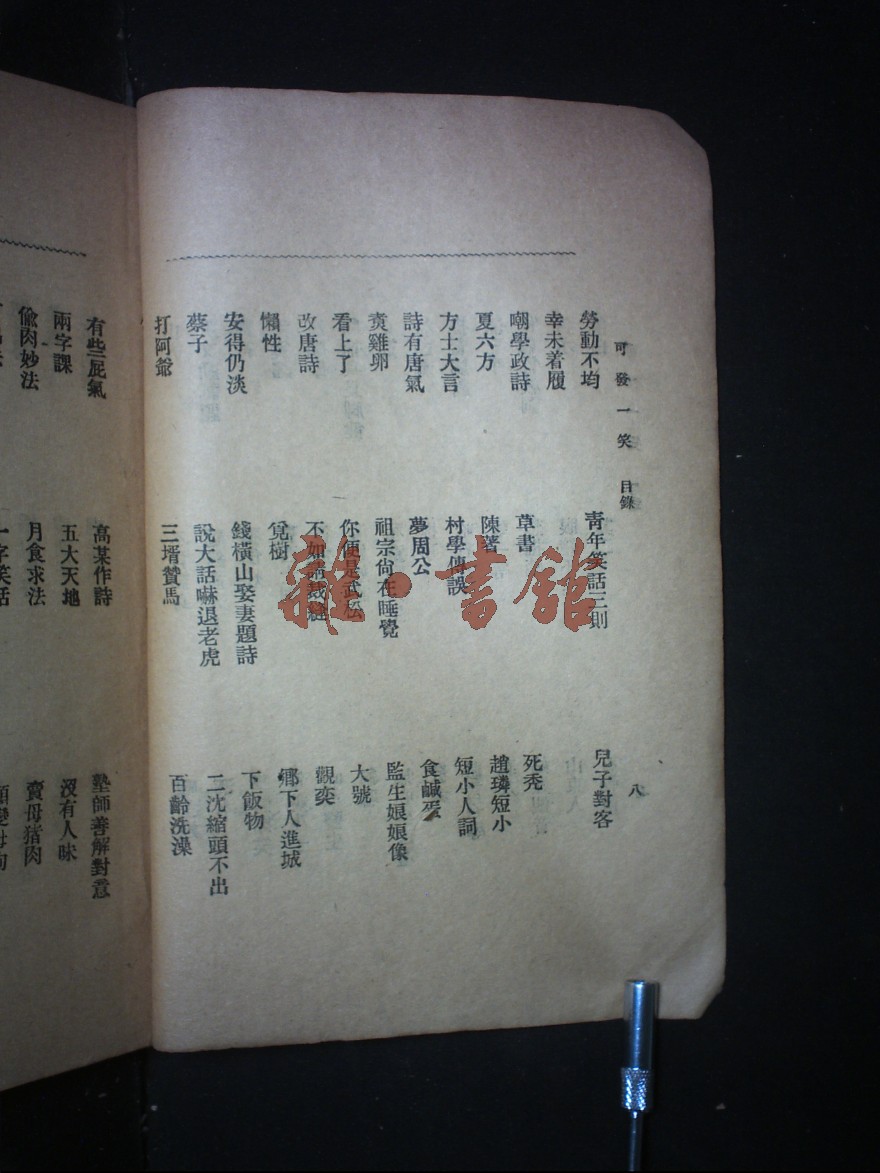 可發一笑 目錄 八
勞動不均 青年笑話三則 兒子對客
幸未着履 草書 死秃
嘲學政詩 陳著 趙璘短小
夏六方 村學傳誤 短小人詞
方士大言 夢周公 食鹹蛋
詩有唐氣 祖宗尙在睡覺 監生娘娘像
賣雞卵 你便是武松 大號
看上了 不如請裁縫 觀奕
改唐詩 覓樹 鄉下人進城
懶性 錢橫山娶妻題詩 下飯物
安得仍淡 說大話嚇退老虎 二沈縮頭不出
蔡子 三壻贊馬 百齡洗澡
打阿爺
有些屁氣 高某作詩 塾師善解對意
兩字課 五大天地 沒有人味
偸肉妙法 月食求法 賣母猪肉
一字笑話
雜·書館